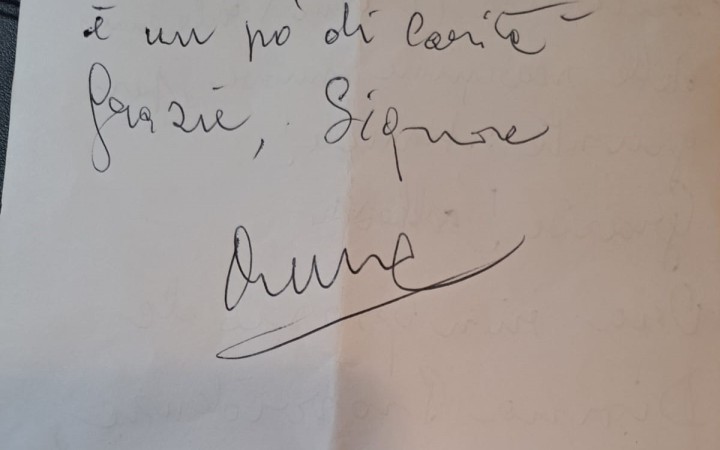 è un pò di carità
Grazie, Signore